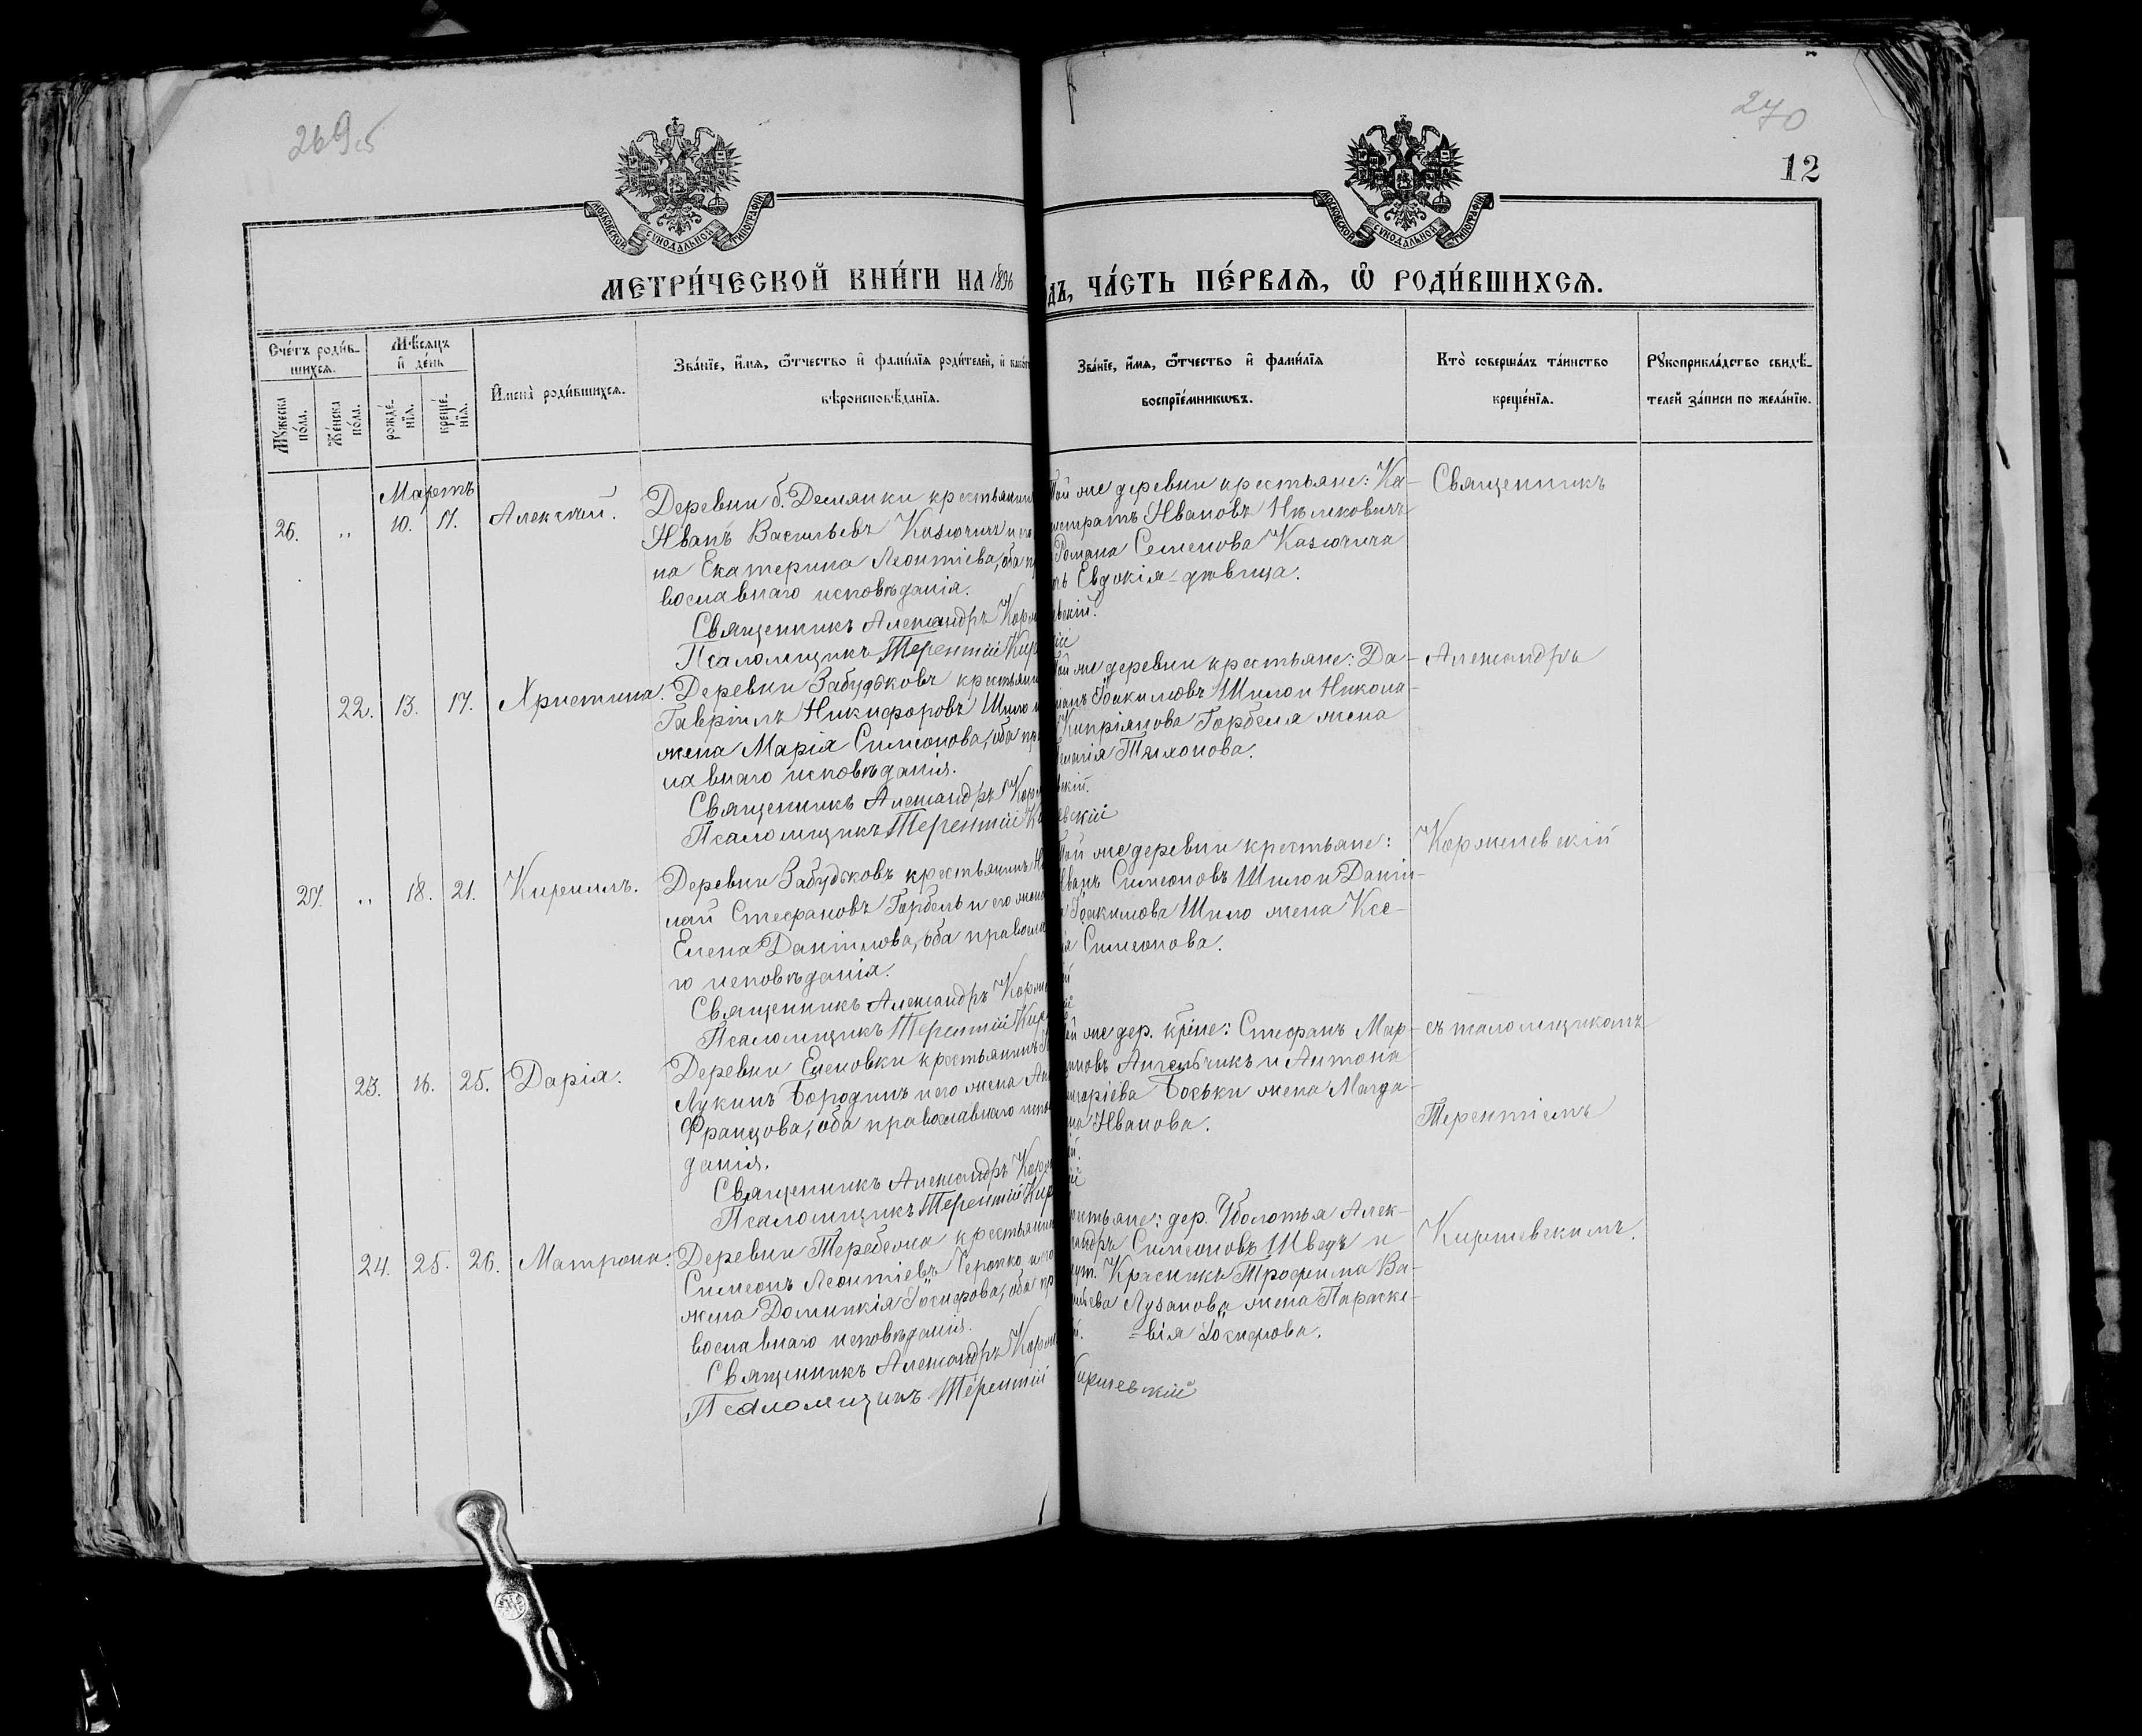 269об
270
12
МОСКОВСКОЙ СѴНОДАЛЬНОЙ ТИПОГРАФІИ
МОСКОВСКОЙ СѴНОДАЛЬНОЙ ТИПОГРАФІИ
МЕТРИ́ЧЕСКОЙ КНИ́ГИ НА 1896
ДЪ, ЧА́СТЬ ПЕ́РВАѦ, Ѿ РОДИ́ВШИХСѦ.
Сче́тъ роди́в-
шихсѧ.
Мꙋ́жеска по́ла.
Же́нска по́ла.
Мѣ́сѧцъ
и҆ де́нь
рожде́-
нїѧ.
креще́-
нїѧ.
И҆мена̀ роди́вшихсѧ.
Зва́нїе, и҆́мѧ, ѻ҆́тчество и҆ фами́лїѧ роди́телей, и҆ како́г
вѣроисповѣ́данїѧ.
Зва́нїе, и҆́мѧ, ѻ҆́тчество и҆ фами́лїѧ
воспрїе́мникѡвъ.
Кто̀ соверша́лъ та́инство
креще́нїѧ.
Рꙋкоприкла́дство свидѣ́-
телей за́писи по жела́нїю.
Мартъ
26. „ 10. 17. Алексѣй.
Деревни б. Демянки крестьянинъ
Иванъ Васильевъ Казючиц и его
на Екатерина Леонтіева, оба пр
вославнаго исповѣданія.
Священникъ Александръ Корж
Псаломщикъ Терентій Кир
Той же деревни крестьяне: Ка-
истратъ Ивановъ
Романа Семенова Казючица
Евдокія дѣвица.
вскій.
Священникъ
22. 13. 17. Христина.
Деревни Забудьковъ крестьянин
Гавріилъ Никифоровъ Шило и
жена Марія Симеонова, оба пр
лавнаго исповѣданія.
Священникъ Александръ Корж
Псаломщикъ Терентій Ки
Той же деревни крестьяне: Да-
Іоакимовъ Шило и Никола-
Кипріянова Горбеля жена
Тихонова.
вскій.
евскій
Александръ
27. „ 18. 21. Кириллъ.
Деревни Забудьковъ крестьянинъ Ни
лай Стефановъ Горбель и его жена
Елена Даніилова, оба православна
го исповѣданія.
Священникъ Александръ Корже
Псаломщикъ Терентій Кир
Той же деревни крестьяне:
Иванъ Симеоновъ Шило и Даніи-
а Іоакимова Шило жена Ксе-
ія Симеонова.
Корженевскій
23. 16. 25. Дарія.
Деревни Еленовки крестьянинъ
Лукинъ Бородинъ и его жена Ан
Францова, оба православнаго испо
данія.
Священникъ Александръ Корж
Псаломщикъ Терентій Кир
ой же дер. кр̃не: Стефанъ Мар-
иновъ Ангельчикъ и Антона
ригоріева Боськи жена Магда-
на Иванова.
съ псаломщикомъ
Терентіемъ
24. 25. 26. Матрона.
Деревни Теребелна крестьянин
Симеонъ Леонтіевъ и его
жена Домникія Іосифова, оба пр
вославнаго исповѣданія.
Священникъ Александръ Корж
Псаломщикъ Терентій
естьяне: дер. Уболотья Алек-
сандръ Симеоновъ Шведъ и
Красникъ Трофима Ва-
ильева Лузанова жена Параске-
=вія Іосифова.
Киршевскій
Киршевскимъ.